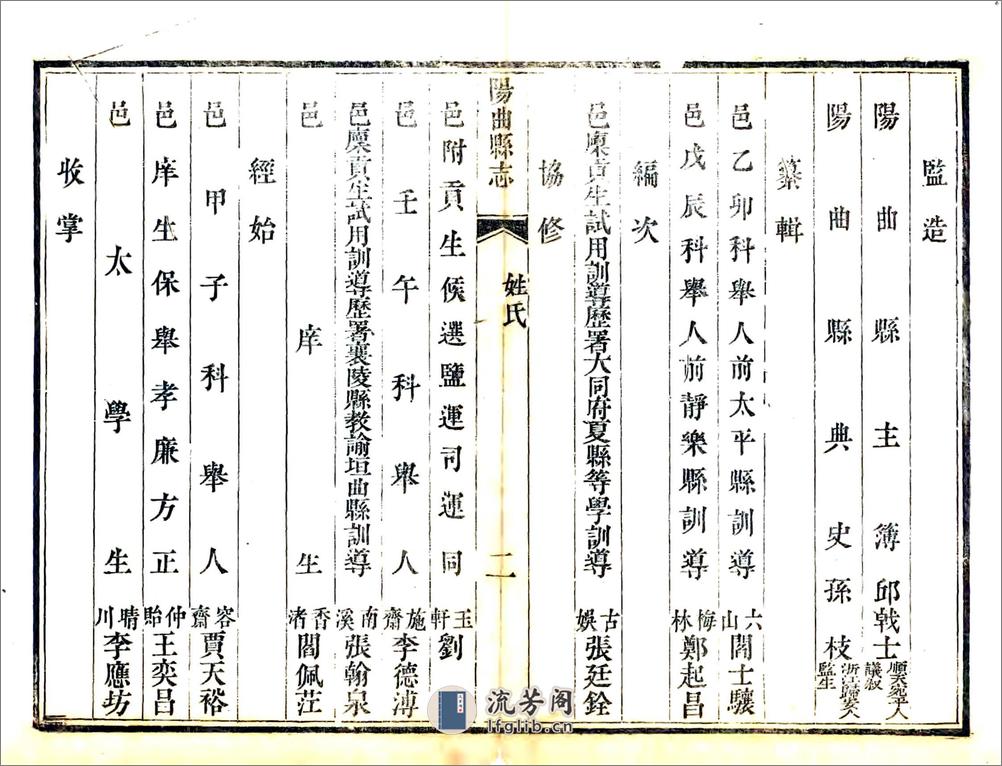 監造
陽曲縣主簿邱戟士順天宛平人議敘
陽曲縣典史孫枝浙江歸安人監生
纂輯
邑乙卯科舉人前太平縣訓導六山閻士驤
邑戊辰科舉人前靜樂縣訓導梅林鄭起昌
編次
邑廩貢生試用訓導歷署大同府夏縣等學訓導古娛張廷銓
協修
陽曲縣志 姓氏 二
邑附貢生候選鹽運司運同玉軒劉
邑壬午科舉人施齋李德溥
邑廩貢生試用訓導歷署襄陵縣教諭垣曲縣訓導南溪張翰泉
邑庠生香渚閻佩茳
經始
邑甲子科舉人容齋賈天裕
邑庠生保舉孝廉方正仲貽王奕昌
邑太學生晴川李應坊
收掌
流芳阁
lfglib.cn